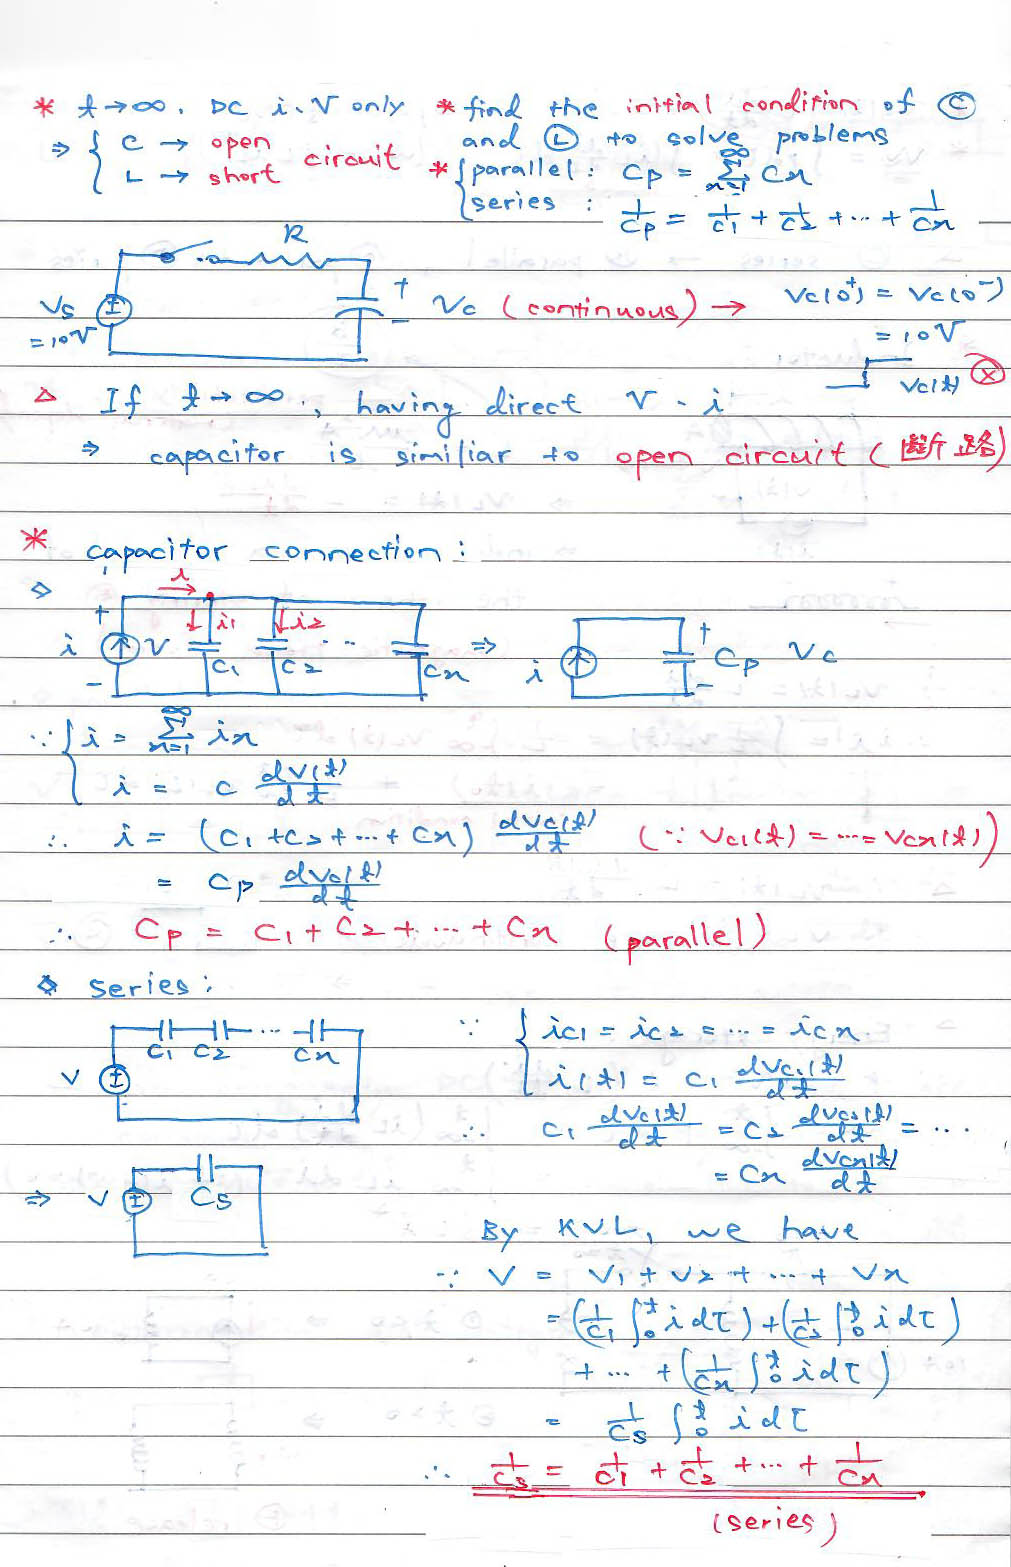 * t→∞, DC i.v only
⇒ { C → open
L → short
circuit
* find the initial condition of Ⓒ
and Ⓛ to solve problems
* { parallel : Cp = ∞ Σ n=1 Cn
series : 1/Cp = 1/C1 + 1/C2 + ... + 1/Cn
R
Vs
= 10V
+
−
Vc (continuous) → Vc(0⁺) = Vc(0⁻)
= 10V
Vc(t) ⓧ
△ If t→∞, having direct v . i
⇒ capacitor is similiar to open circuit (斷路)
* capacitor connection :
◇
i
+
−
i V i1 C1 i2 C2 ... Cn ⇒ i
+
−
Cp Vc
∵ { i = ∞ Σ n=1 in
i = C dv(t)/dt
∴ i = (C1 + C2 + ... + Cn) dVc(t)/dt (∵ Vc1(t) = ... = Vcn(t))
= Cp dVc(t)/dt
∴ Cp = C1 + C2 + ... + Cn (parallel)
◇ series :
V C1 C2 ... Cn
∵ { ic1 = ic2 = ... = icn
i(t) = C1 dVc1(t)/dt
∴ C1 dVc(t)/dt = C2 dVc2(t)/dt = ...
= Cn dVcn(t)/dt
⇒ V Cs
By KVL, we have
∵ V = V1 + V2 + ... + Vn
= (1/C1 ∫₀ᵗ i dτ) + (1/C2 ∫₀ᵗ i dτ)
+ ... + (1/Cn ∫₀ᵗ i dτ)
= 1/Cs ∫₀ᵗ i dτ
∴ 1/Cs = 1/C1 + 1/C2 + ... + 1/Cn
(series)